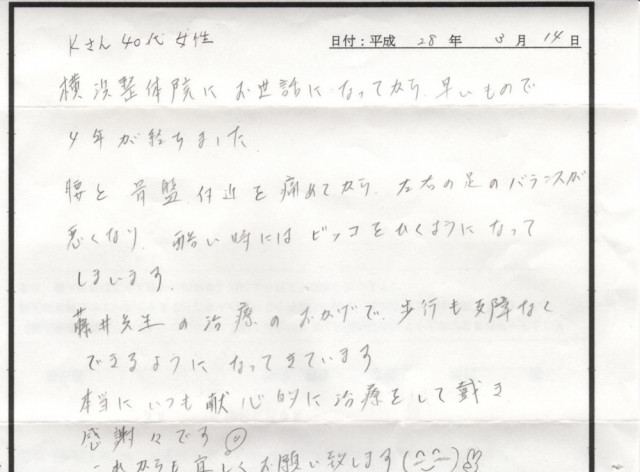 Kさん 40代 女性
日付：平成 28 年 3 月 14 日
横浜整体院に お世話に なってから、早いもので
4年が経ちました。
腰と 骨盤 付近を 痛めてから、左右の足のバランスが
悪くなり、酷い時には ビッコをひくように なって
しまいます。
藤井先生の治療のおかげで、歩行も支障なく
できるように なってきています
本当に いつも 献心的に 治療をして戴き
感謝々です
これからも宜しくお願い致します(^^)